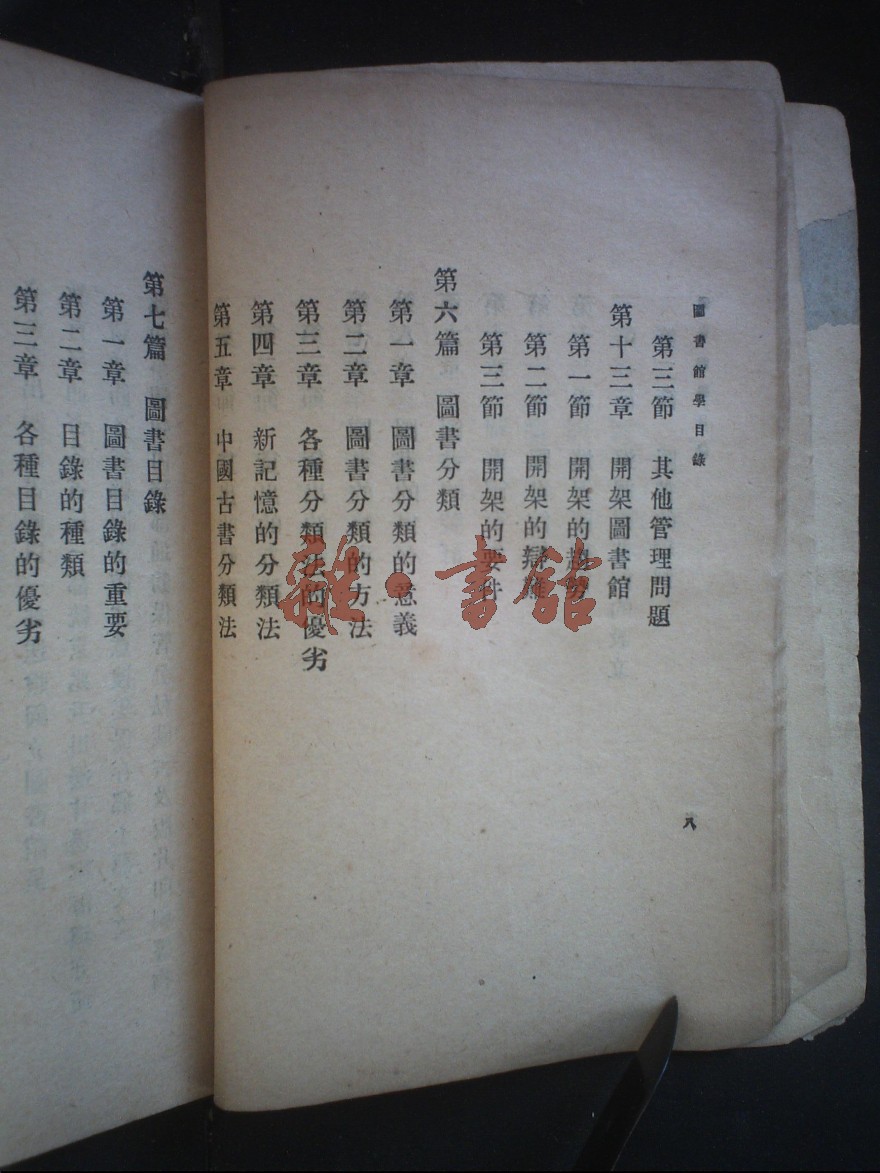 圖書館學目錄
第三節 其他管理問題
第十三章 開架圖書館
第一節 開架的趨勢
第二節 開架的辯難
第三節 開架的要件
第六篇 圖書分類
第一章 圖書分類的意義
第二章 圖書分類的方法
第三章 各種分類法的優劣
第四章 新記憶的分類法
第五章 中國古書分類法
八
第七篇 圖書目錄
第一章 圖書目錄的重要
第二章 目錄的種類
第三章 各種目錄的優劣
雜·書館